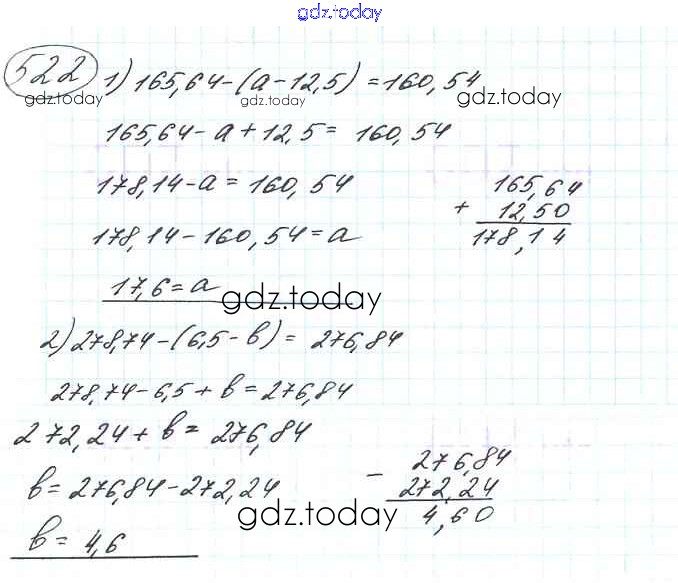 gdz.today
522 1) 165,64-(a-12,5)=160,54
gdz.today gdz.today gdz.today
165,64-a+12,5= 160,54
178,14-a=160,54
178,14-160,54=a
17,6=a
165,64
+ 12,50
178,14
gdz.today
2) 278,74-(6,5-b)= 276,84
278,74-6,5+b=276,84
272,24+b= 276,84
b=276,84-272,24
b= 4,6
- 276,84
272,24
4,60
gdz.today